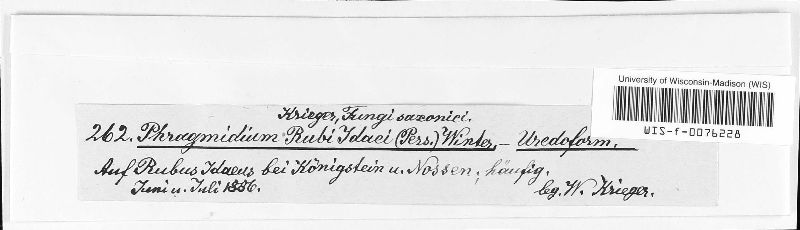 University of Wisconsin-Madison (WIS)
WIS-f-0076228
Krieger, Fungi saxonici.
262. Phragmidium Rubi Idaei (Pers.) Winter. – Uredoform.
Auf Rubus Idaeus bei Königstein u. Nossen, häufig.
Juni u. Juli 1886. leg. W. Krieger.